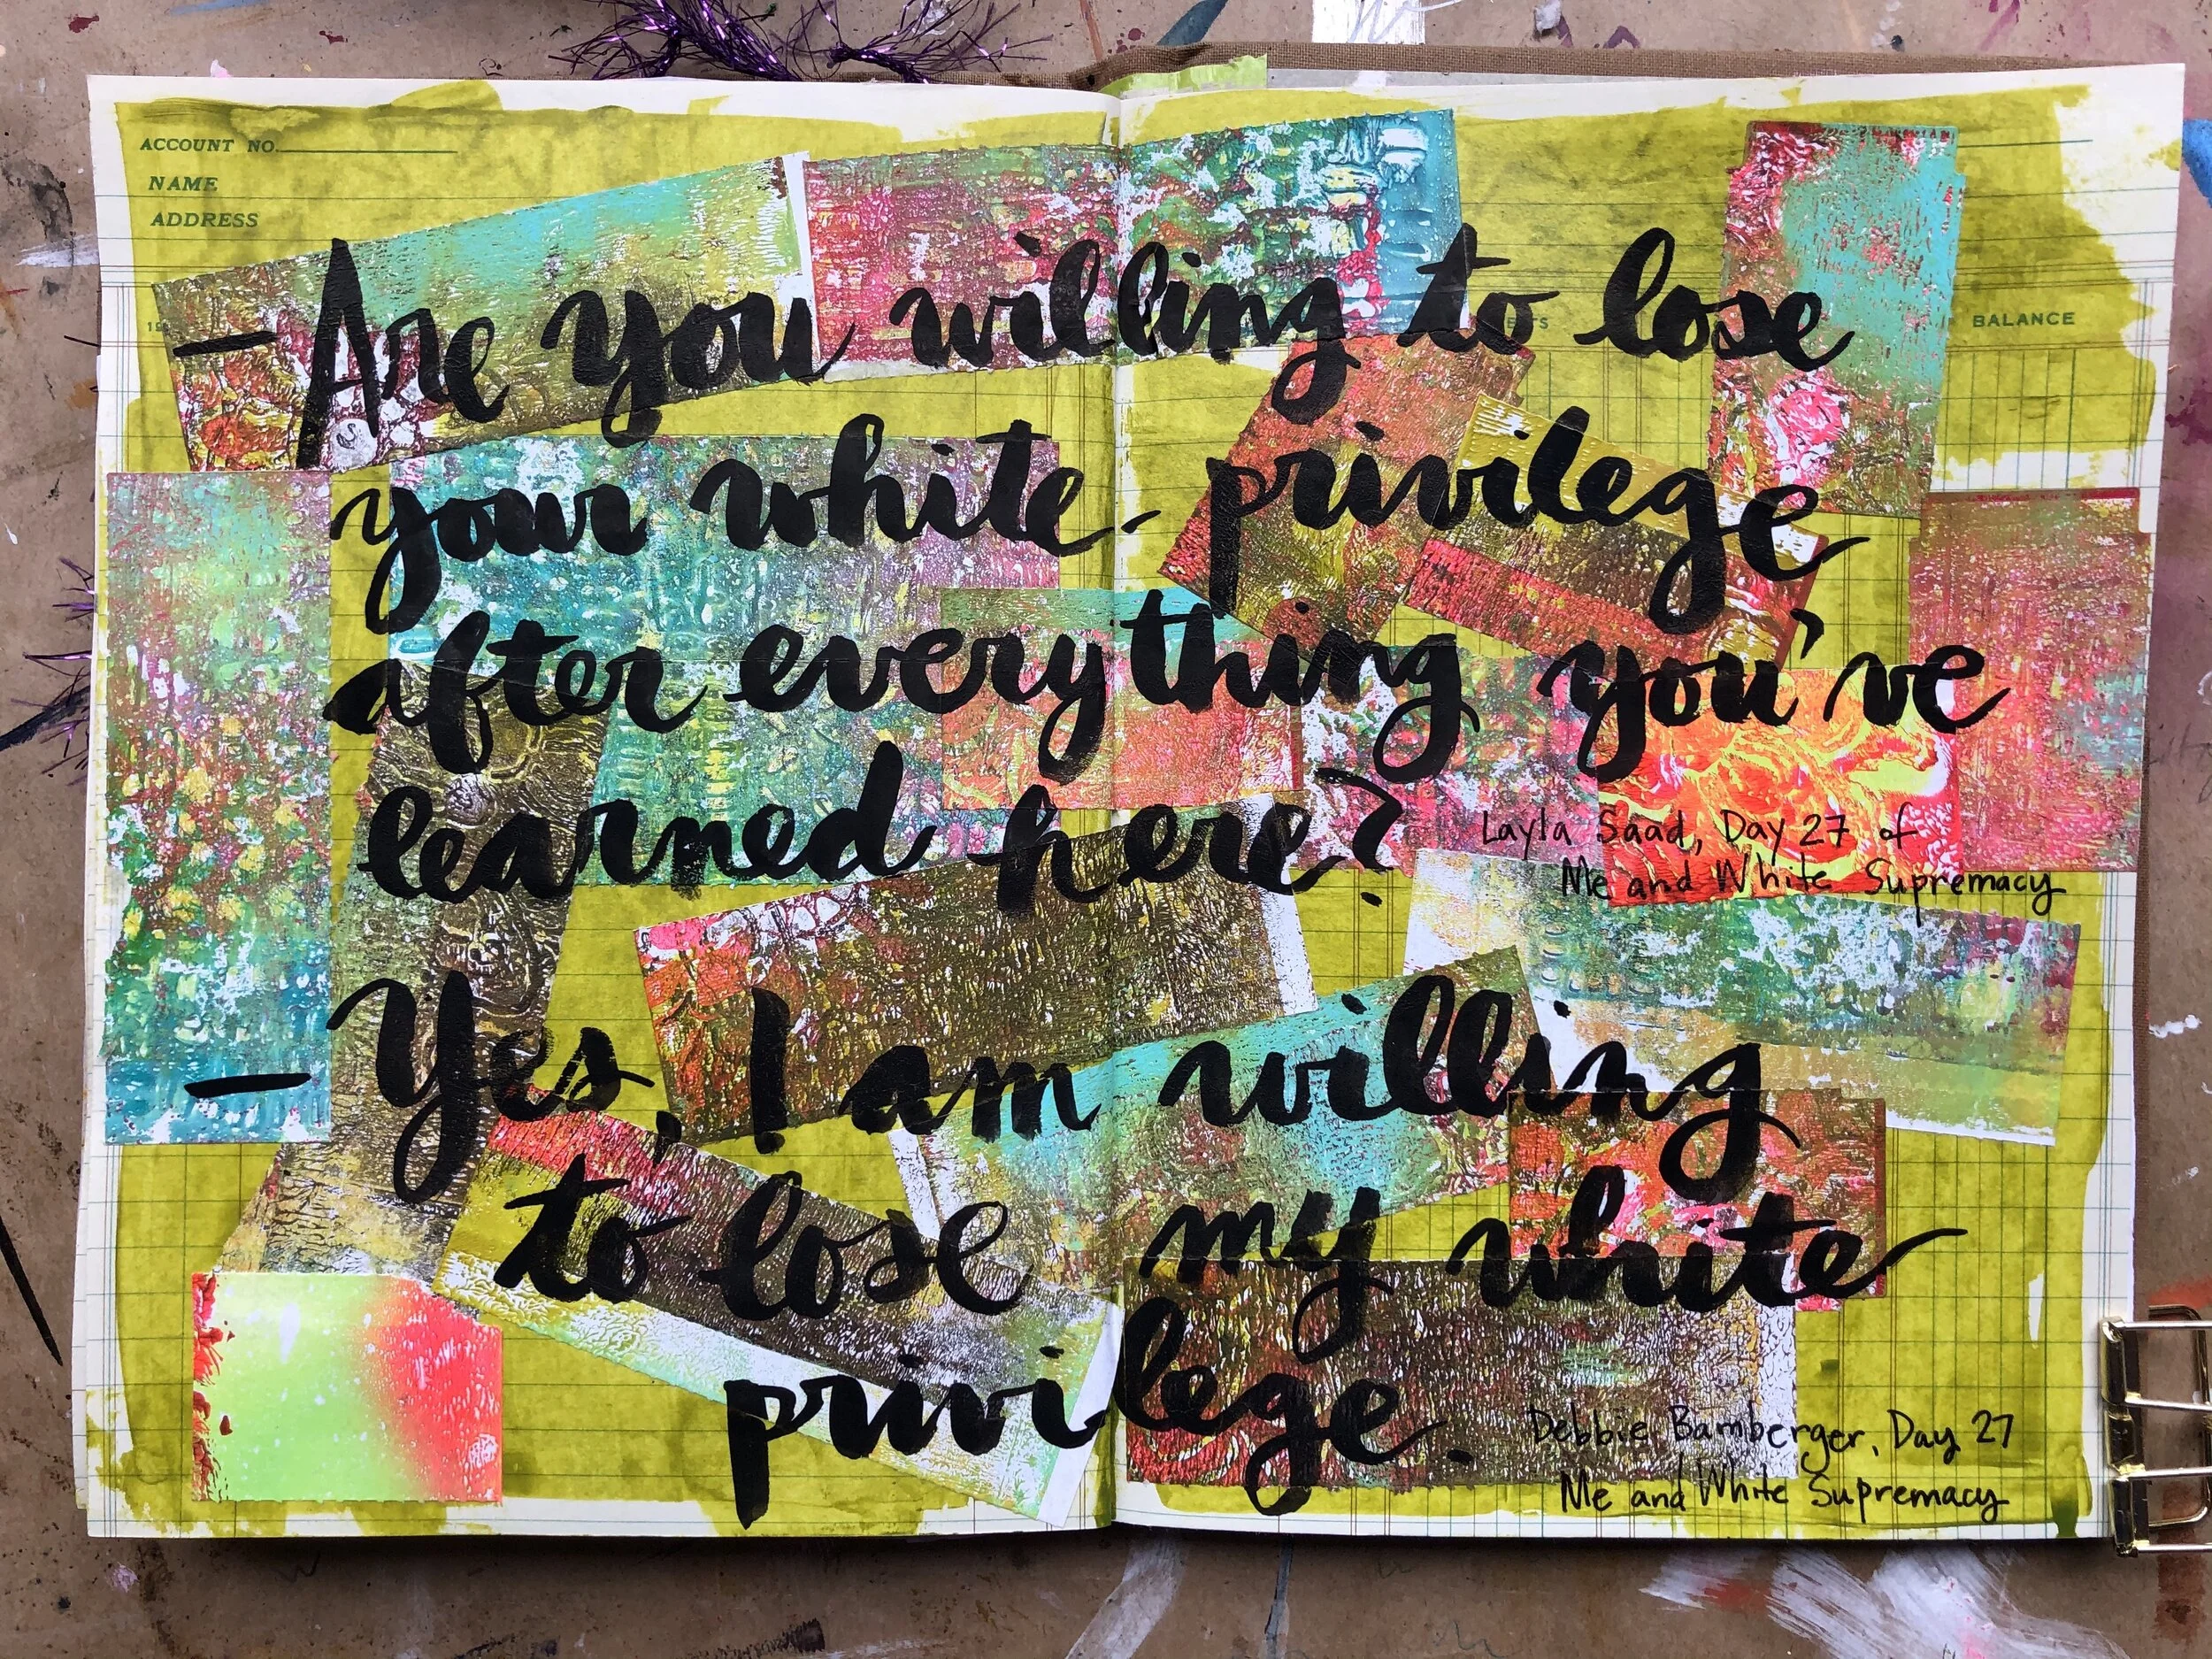 ACCOUNT NO.
NAME
ADDRESS
BALANCE
— Are you willing to lose
your white privilege
after everything you've
learned here?
Layla Saad, Day 27 of
Me and White Supremacy
— Yes, I am willing
to lose my white
privilege.
Debbie Bamberger, Day 27
Me and White Supremacy